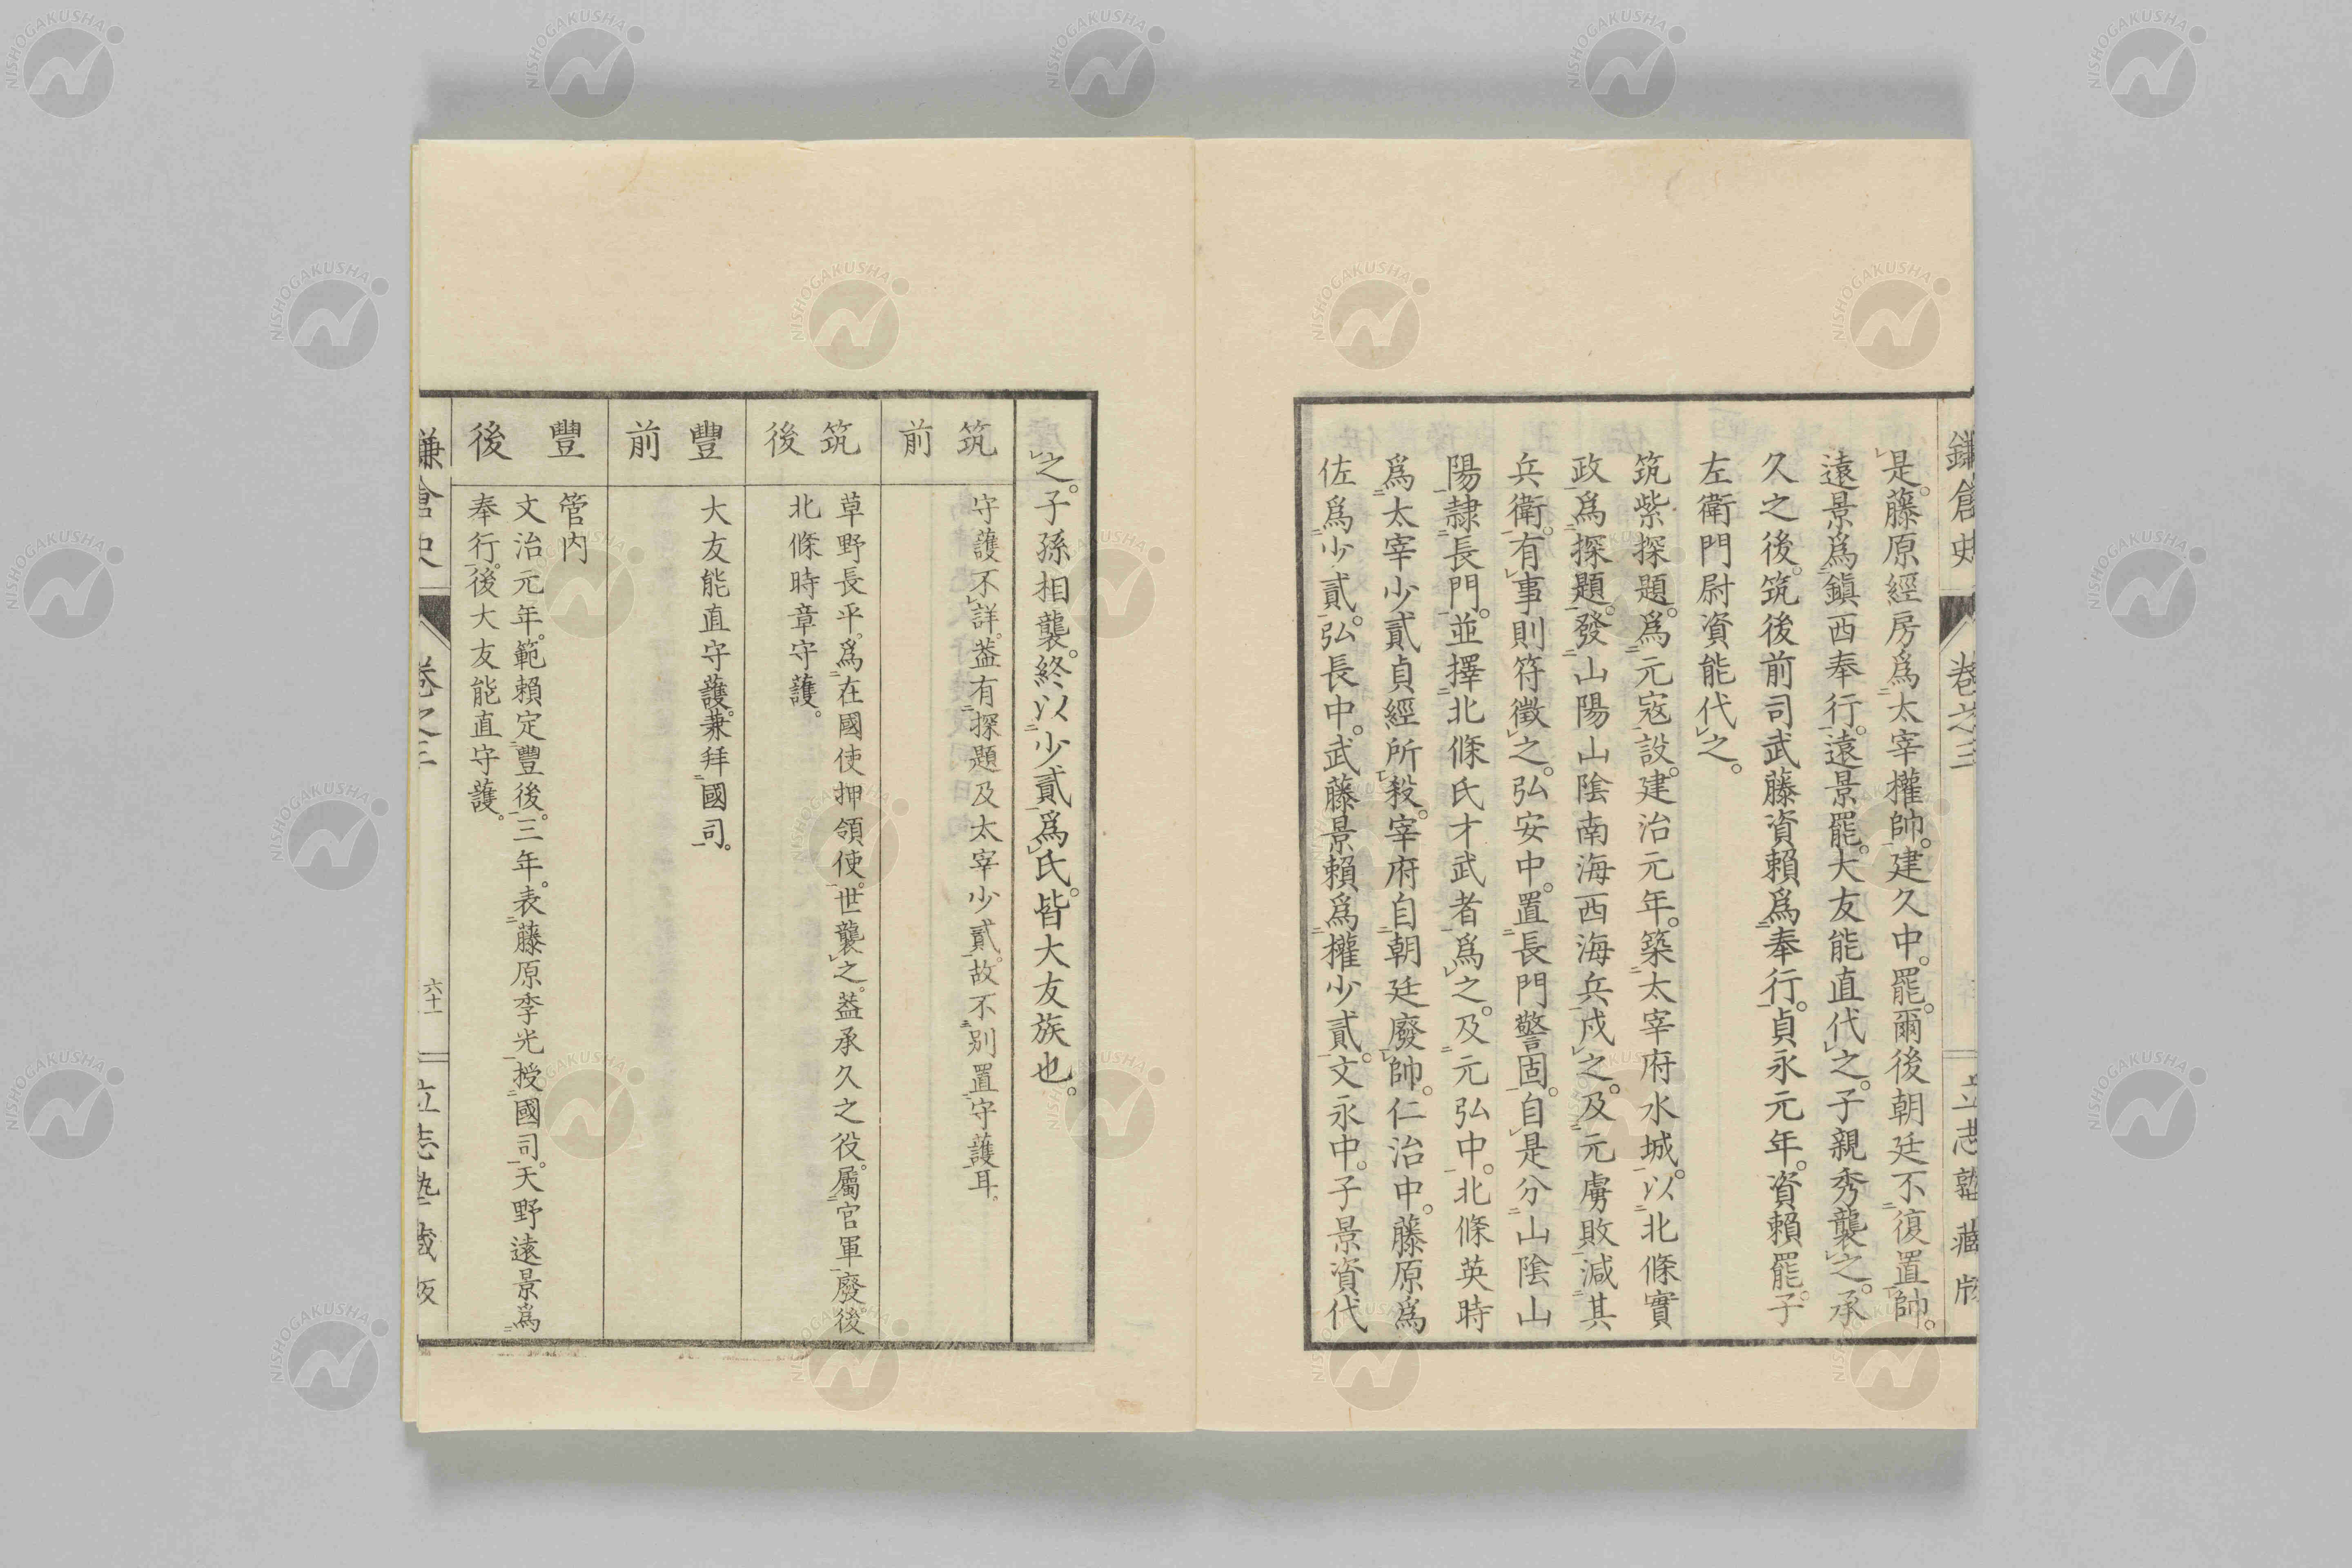 鎌倉史 卷之三 立志塾藏版
是。藤原經房爲太宰權帥。建久中。罷。爾後朝廷不復置帥。
遠景爲鎭西奉行。遠景罷。大友能直代之。子親秀襲之。承
久之後。筑後前司武藤資賴爲奉行。貞永元年。資賴罷。子
左衛門尉資能代之。
筑紫探題。爲元寇設。建治元年。築太宰府水城。以北條實
政爲探題。發山陽山陰南海西海兵戍之。及元虜敗減其
兵衛。有事則符徵之。弘安中。置長門警固。自是分山陰山
陽隷長門。並擇北條氏才武者爲之。及元弘中。北條英時
爲太宰少貳貞經所殺。宰府自朝廷廢帥。仁治中。藤原爲
佐爲少貳。弘長中。武藤景賴爲權少貳。文永中。子景資代
之。子孫相襲。終以少貳爲氏。皆大友族也。
筑前
守護不詳。葢有探題及太宰少貳。故不別置守護耳。
筑後
草野長平。爲在國使押領使。世襲之。葢承久之役。屬官軍廢後
北條時章守護。
豐前
大友能直守護。兼拜國司。
豐後
管内
文治元年。範賴定豐後。三年。表藤原季光授國司。天野遠景爲
奉行。後大友能直守護。
鎌倉史 卷之三 六十一 立志塾藏版
NISHOGAKUSHA